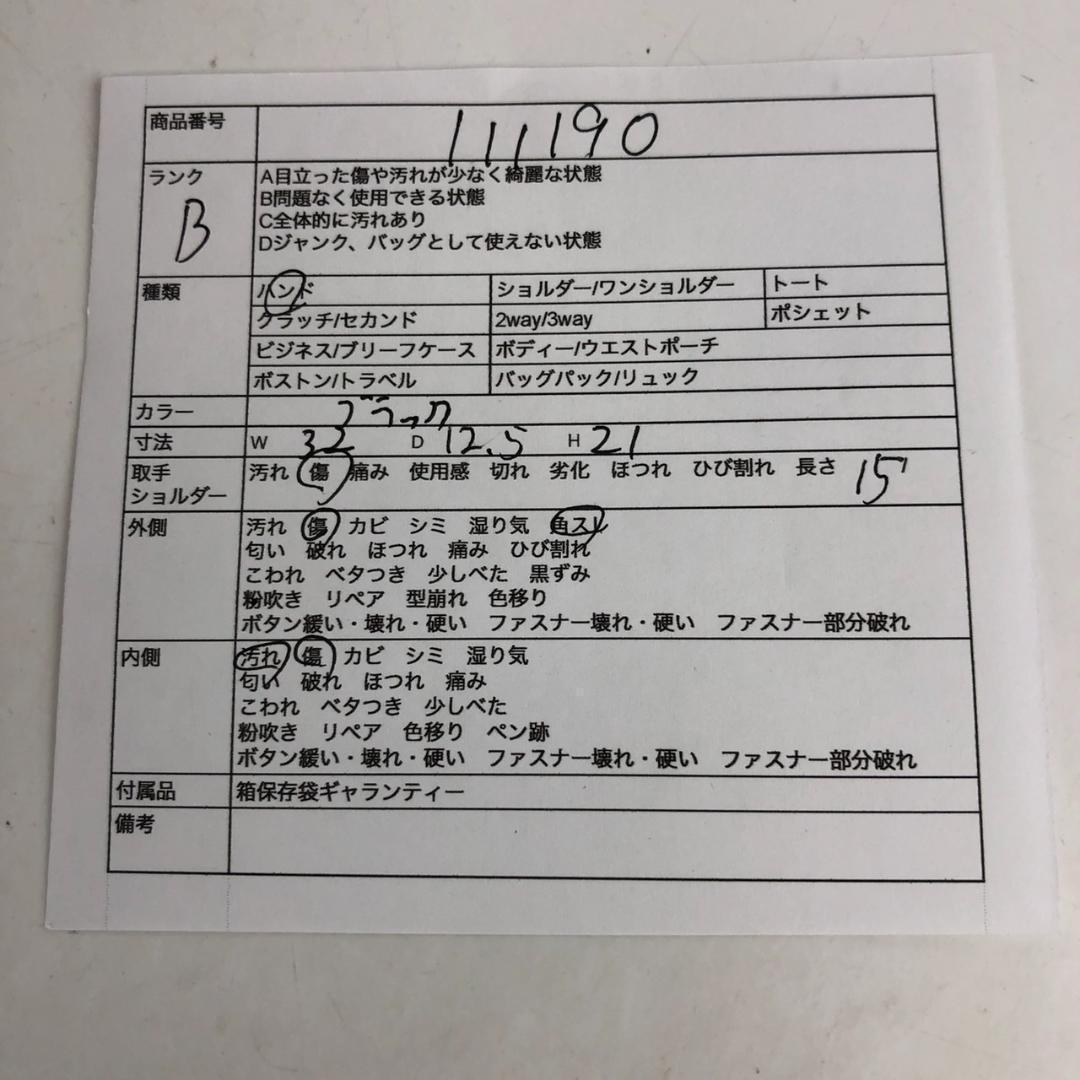 商品番号 111190
ランク A目立った傷や汚れが少なく綺麗な状態
B B問題なく使用できる状態
C全体的に汚れあり
Dジャンク、バッグとして使えない状態
種類 ハンド ショルダー/ワンショルダー トート
クラッチ/セカンド 2way/3way ポシェット
ビジネス/ブリーフケース ボディー/ウエストポーチ
ボストン/トラベル バッグパック/リュック
カラー ブラック
寸法 W 32 D 12.5 H 21
取手 汚れ 傷 痛み 使用感 切れ 劣化 ほつれ ひび割れ 長さ 15
ショルダー
外側 汚れ 傷 カビ シミ 湿り気 角スレ
匂い 破れ ほつれ 痛み ひび割れ
こわれ ベタつき 少しべた 黒ずみ
粉吹き リペア 型崩れ 色移り
ボタン緩い・壊れ・硬い ファスナー壊れ・硬い ファスナー部分破れ
内側 汚れ 傷 カビ シミ 湿り気
匂い 破れ ほつれ 痛み
こわれ ベタつき 少しべた
粉吹き リペア 色移り ペン跡
ボタン緩い・壊れ・硬い ファスナー壊れ・硬い ファスナー部分破れ
付属品 箱保存袋ギャランティー
備考